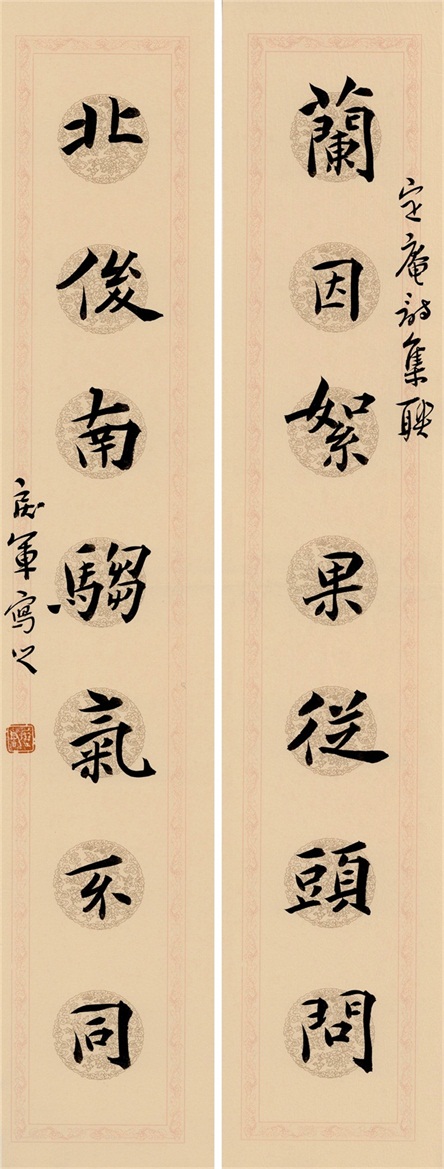 定庵詩集聯
蘭因絮果從頭問
北俊南騶氣不同
寫之